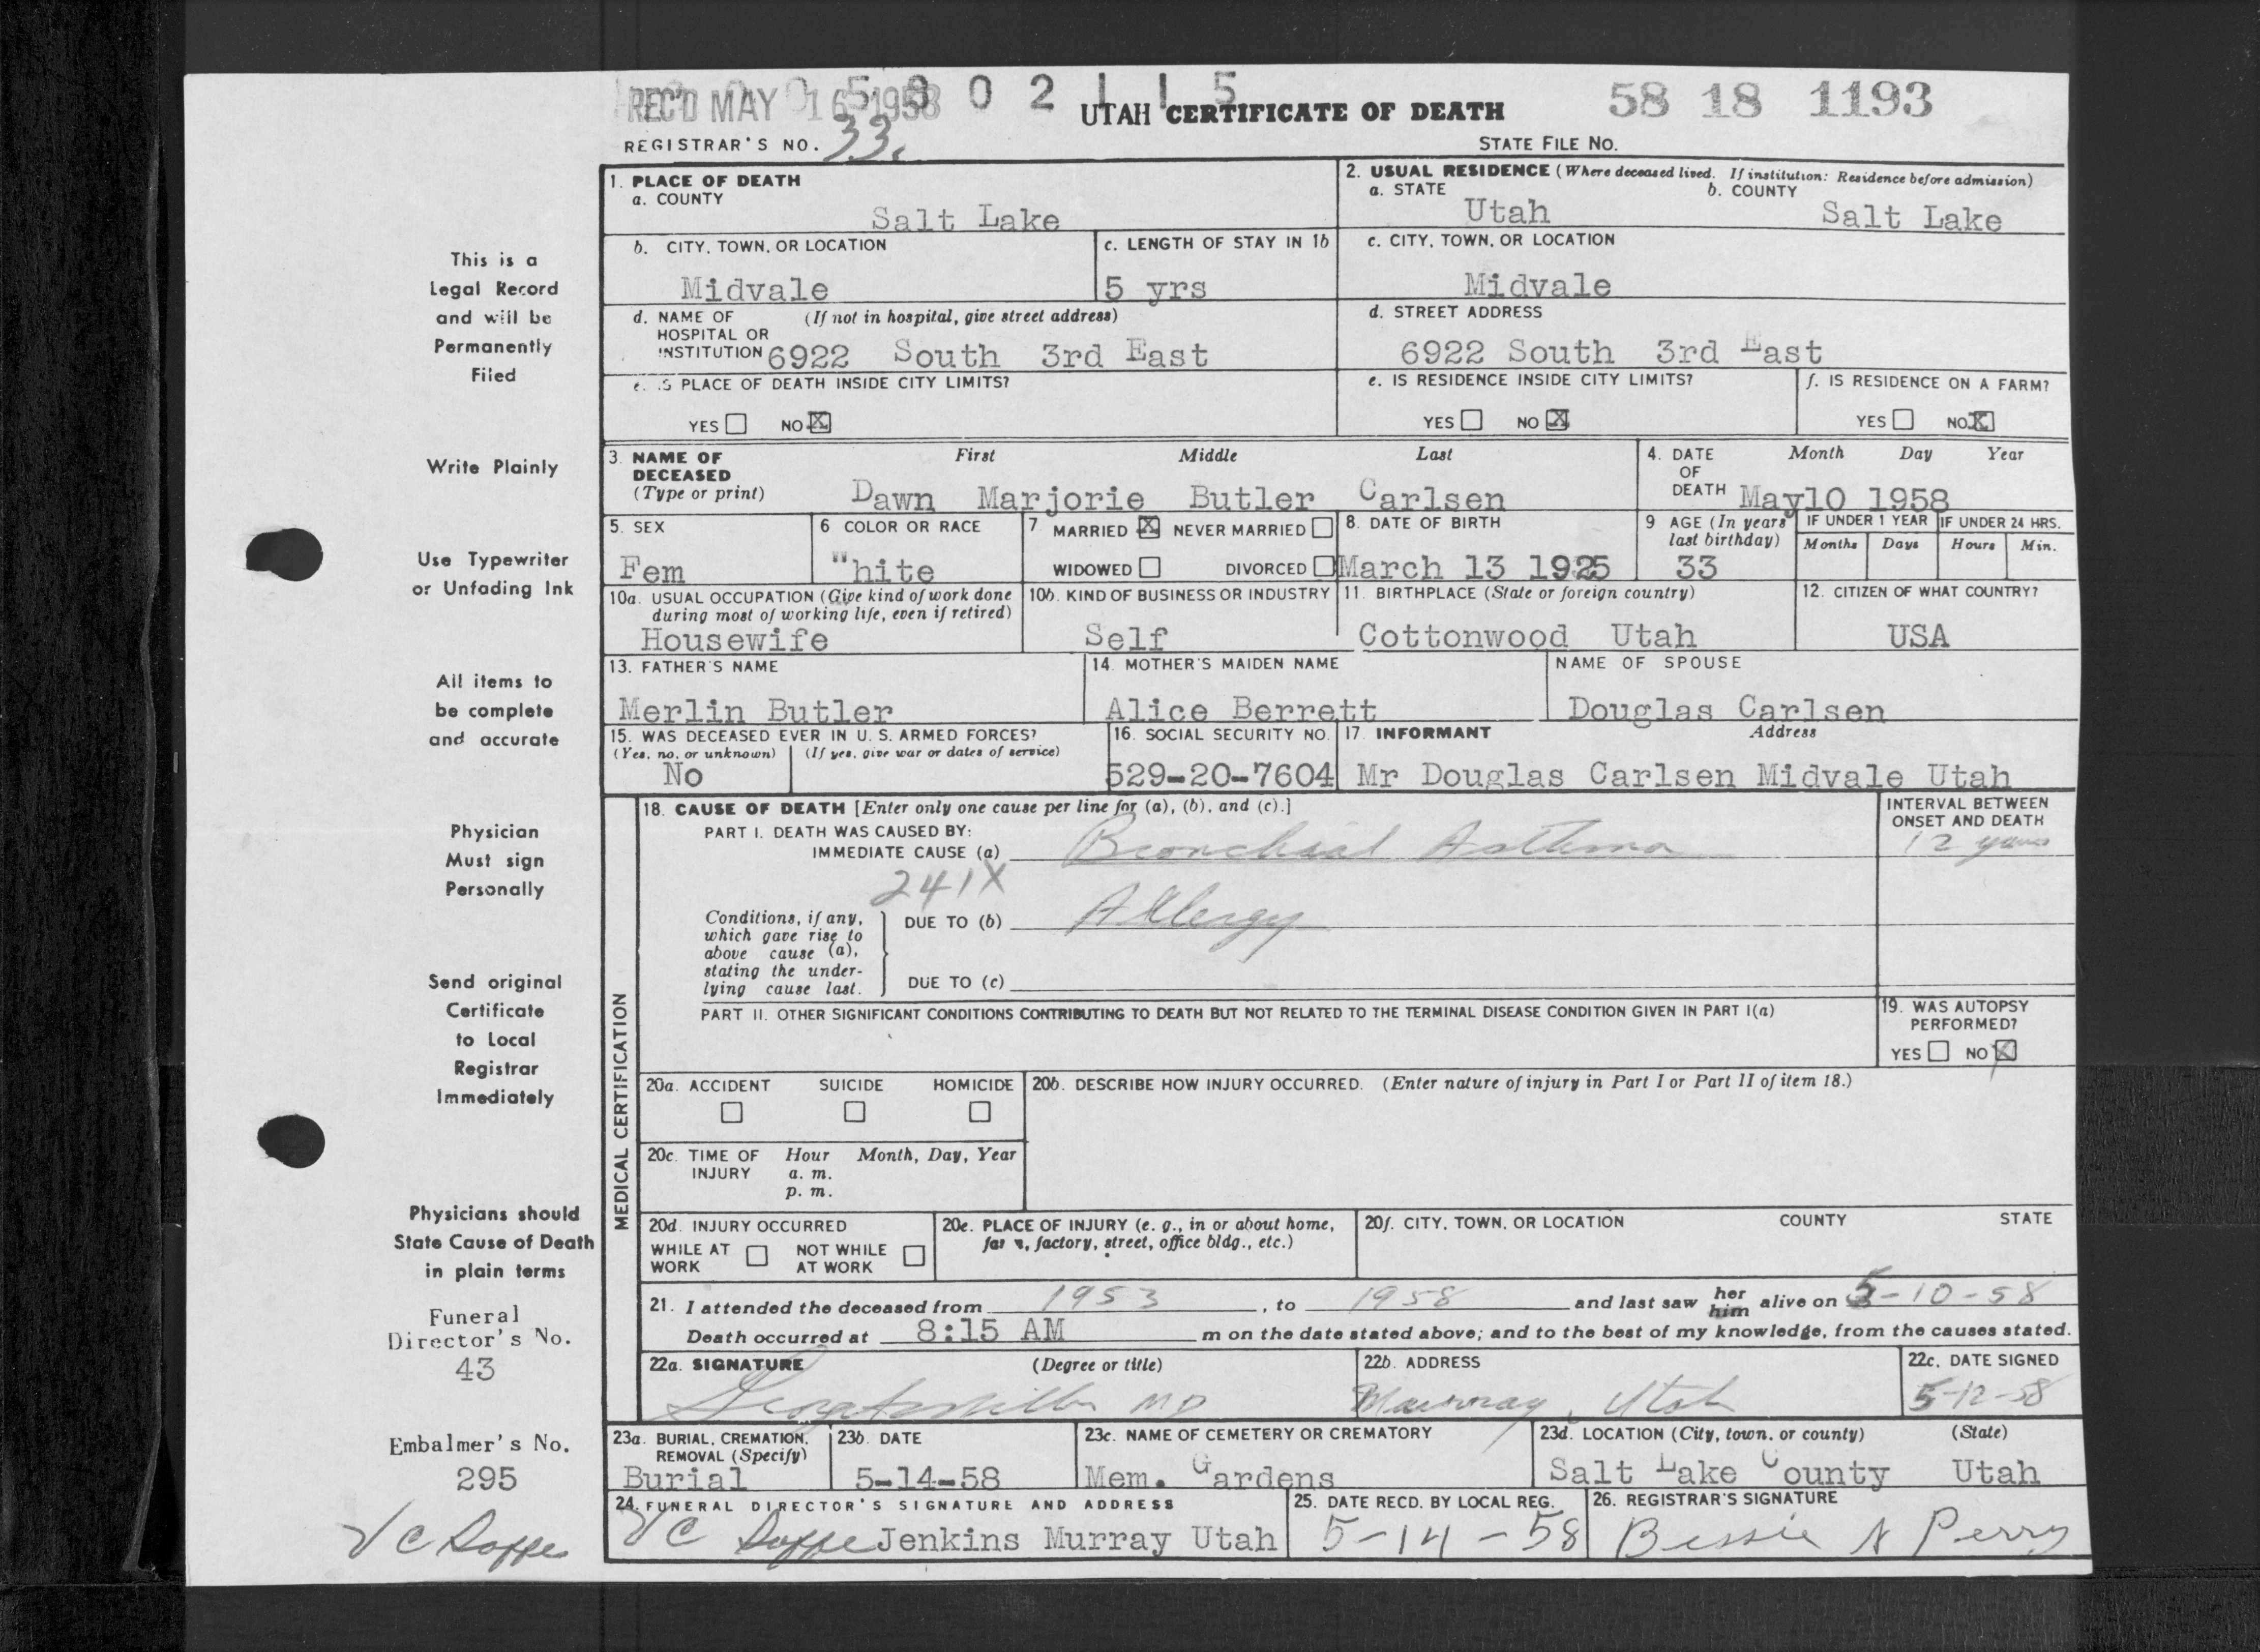 REC'D MAY 16 1958 0 2 1 1 5 UTAH CERTIFICATE OF DEATH 58 18 1193
REGISTRAR'S NO. 33. STATE FILE NO.
1. PLACE OF DEATH
a. COUNTY
Salt Lake
2. USUAL RESIDENCE (Where deceased lived. If institution: Residence before admission)
a. STATE b. COUNTY
Utah Salt Lake
b. CITY, TOWN, OR LOCATION c. LENGTH OF STAY IN 1b c. CITY, TOWN, OR LOCATION
Midvale 5 yrs Midvale
d. NAME OF (If not in hospital, give street address)
HOSPITAL OR
INSTITUTION 6922 South 3rd East
d. STREET ADDRESS
6922 South 3rd East
e. IS PLACE OF DEATH INSIDE CITY LIMITS? e. IS RESIDENCE INSIDE CITY LIMITS? f. IS RESIDENCE ON A FARM?
YES NO X YES NO X YES NO X
3. NAME OF First Middle Last
DECEASED
(Type or print) Dawn Marjorie Butler Carlsen
4. DATE Month Day Year
OF
DEATH May10 1958
5. SEX 6 COLOR OR RACE 7 MARRIED X NEVER MARRIED 8. DATE OF BIRTH 9 AGE (In years IF UNDER 1 YEAR IF UNDER 24 HRS.
last birthday) Months Days Hours Min.
Fem White WIDOWED DIVORCED March 13 1925 33
10a. USUAL OCCUPATION (Give kind of work done 10b. KIND OF BUSINESS OR INDUSTRY 11. BIRTHPLACE (State or foreign country) 12. CITIZEN OF WHAT COUNTRY?
during most of working life, even if retired)
Housewife Self Cottonwood Utah USA
13. FATHER'S NAME 14. MOTHER'S MAIDEN NAME NAME OF SPOUSE
Merlin Butler Alice Berrett Douglas Carlsen
15. WAS DECEASED EVER IN U. S. ARMED FORCES? 16. SOCIAL SECURITY NO. 17. INFORMANT Address
(Yes, no, or unknown) (If yes, give war or dates of service)
No 529-20-7604 Mr Douglas Carlsen Midvale Utah
MEDICAL CERTIFICATION
18. CAUSE OF DEATH [Enter only one cause per line for (a), (b), and (c).] INTERVAL BETWEEN
ONSET AND DEATH
PART I. DEATH WAS CAUSED BY:
IMMEDIATE CAUSE (a) Bronchial Asthma 12 years
241X
Conditions, if any,
which gave rise to
above cause (a),
stating the under-
lying cause last.
DUE TO (b) Allergy
DUE TO (c)
PART II. OTHER SIGNIFICANT CONDITIONS CONTRIBUTING TO DEATH BUT NOT RELATED TO THE TERMINAL DISEASE CONDITION GIVEN IN PART I(a)
19. WAS AUTOPSY
PERFORMED?
YES NO X
20a. ACCIDENT SUICIDE HOMICIDE 20b. DESCRIBE HOW INJURY OCCURRED. (Enter nature of injury in Part I or Part II of item 18.)
20c. TIME OF Hour Month, Day, Year
INJURY a. m.
p. m.
20d. INJURY OCCURRED
WHILE AT NOT WHILE
WORK AT WORK
20e. PLACE OF INJURY (e. g., in or about home,
farm, factory, street, office bldg., etc.)
20f. CITY, TOWN, OR LOCATION COUNTY STATE
21. I attended the deceased from 1953, to 1958 and last saw her him alive on 5-10-58
Death occurred at 8:15 AM m on the date stated above; and to the best of my knowledge, from the causes stated.
22a. SIGNATURE (Degree or title) 22b. ADDRESS 22c. DATE SIGNED
MD Murray, Utah 5-12-58
23a. BURIAL, CREMATION, 23b. DATE 23c. NAME OF CEMETERY OR CREMATORY 23d. LOCATION (City, town, or county) (State)
REMOVAL (Specify)
Burial 5-14-58 Mem. Gardens Salt Lake County Utah
24. FUNERAL DIRECTOR'S SIGNATURE AND ADDRESS 25. DATE RECD. BY LOCAL REG. 26. REGISTRAR'S SIGNATURE
Jenkins Murray Utah 5-14-58 Bessie N Perry
This is a
Legal Record
and will be
Permanently
Filed
Write Plainly
Use Typewriter
or Unfading Ink
All items to
be complete
and accurate
Physician
Must sign
Personally
Send original
Certificate
to Local
Registrar
Immediately
Physicians should
State Cause of Death
in plain terms
Funeral
Director's No.
43
Embalmer's No.
295